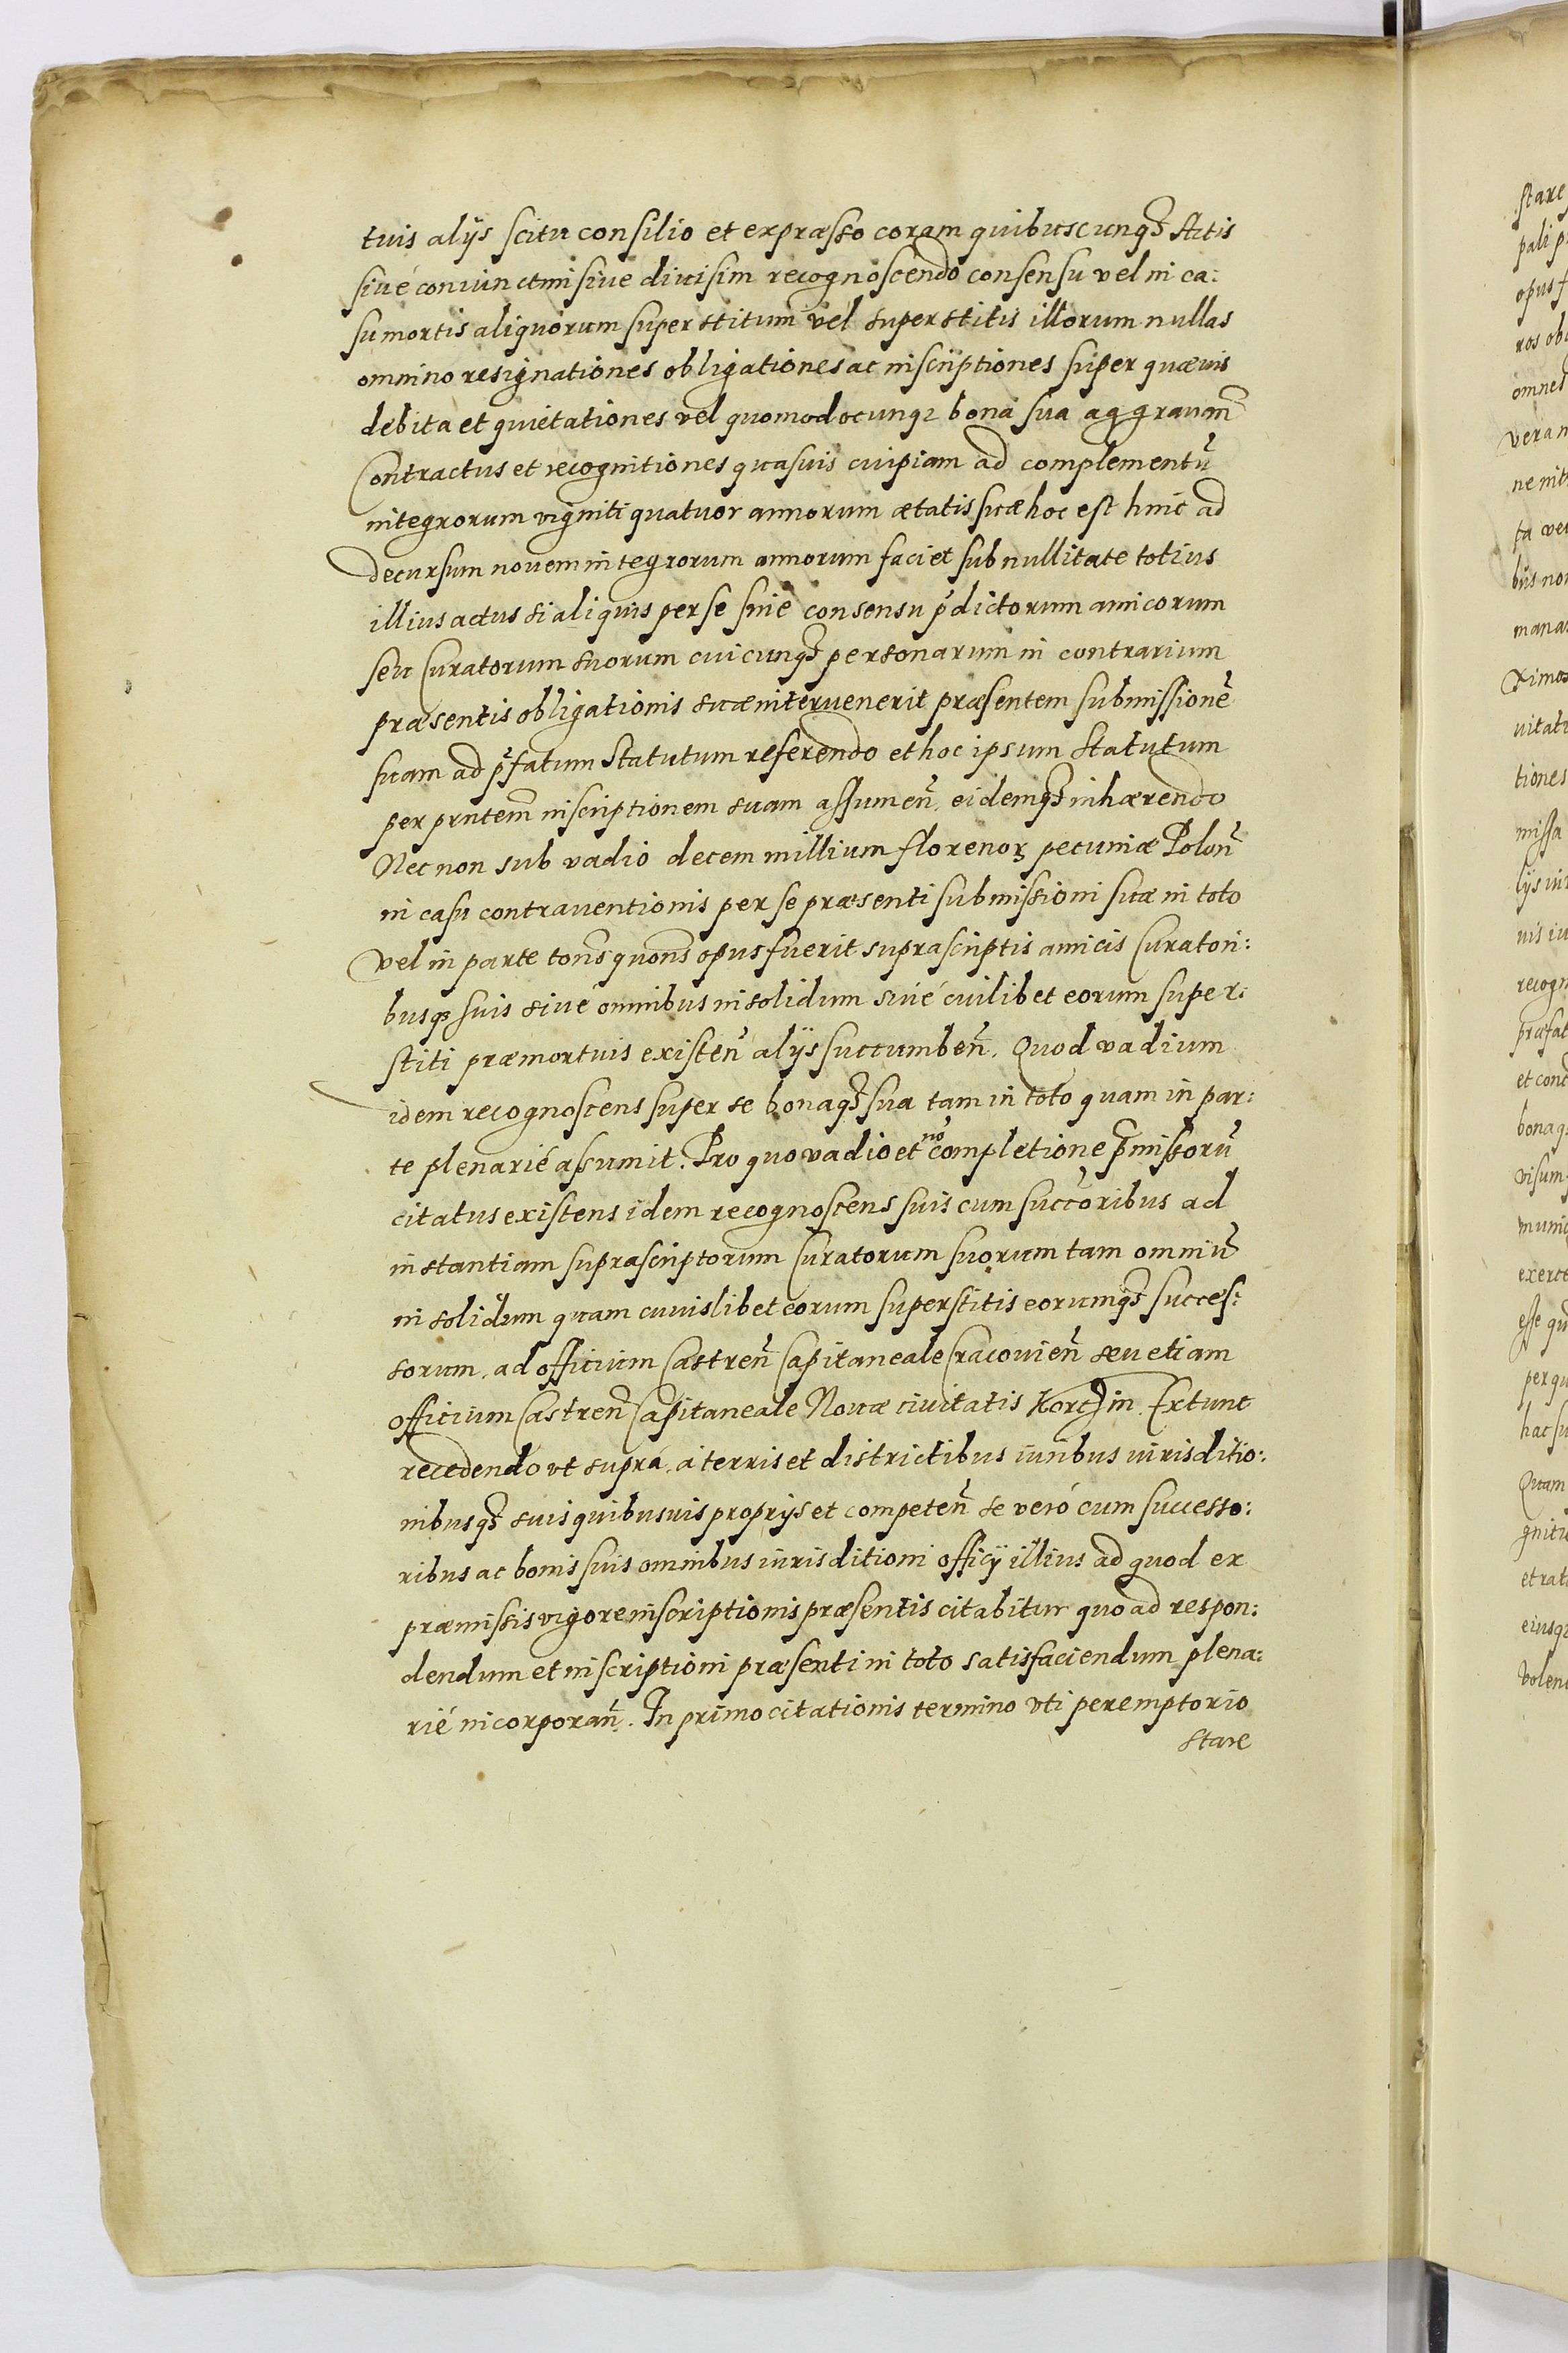 tuis alijs scitu consilio et expræsso coram quibuscunq3 Actis
siué coniunctim siue diuisim recognoscendo consensu vel in ca:
su mortis aliquorum superstitum vel superstitis illorum nullas
omnino resignationes obligationes ac inscriptiones super quæuis
debita et quietationes vel quomodocunq3 bona sua aggrauan̄
Contractus et recognitiones quasuis cuipiam ad complementū
integrorum viginti quatuor annorum ætatis suæ hoc est hinc ad
decursum nouem integrorum annorum faciet sub nullitate totius
illius actus si aliquis per se siue consensu p̄dictorum amicorum
seu Curatorum suorum cuicunq3 personarum in contrarium
præsentis obligationis suæ interuenerit præsentem submissionē
suam ad p̄fatum Statutum referendo et hoc ipsum Statutum
per pn̄tem inscriptionem suam assumen̄. eidemq3 inhærendo
Nec non sub vadio decem millium florenoꝝ pecuniæ Polon̄
in casu contrauentionis per se præsenti submissioni suæ in toto
vel in parte toñs quoñs opus fuerit suprascriptis amicis Curatori:
busq3 suis siué omnibus in solidum siué cuilibet eorum super:
stiti præmortuis existen̄ alijs succumben̄. Quod vadium
idem recognoscens super se bonaq3 sua tam in toto quam in par:
te plenarié assumit. Pro quo vadio et nō completione p̄missorū
citatus existens idem recognoscens suis cum succōribus ad
instantiam suprascriptorum Curatorum suorum tam omniū
in solidum quam cuiuslibet eorum superstitis eorumq3 succes:
sorum. ad officium Castren̄ Capitaneale Cracouien̄ seu etiam
officium Castren̄ Capitaneale Nouæ ciuitatis Korczin. Extunc
recedendo vt suprá. á terris et districtibus iuribus iurisditio:
nibusq3 suis quibusuis proprijs et competen̄ se veró cum successo:
ribus ac bonis suis omnibus iurisditioni officij illius ad quod ex
præmissis vigore inscriptionis præsentis citabitur quo ad respon:
dendum et inscriptioni præsenti in toto satisfaciendum plena:
rié incorporan̄. In primo citationis termino vti peremptorio
stare